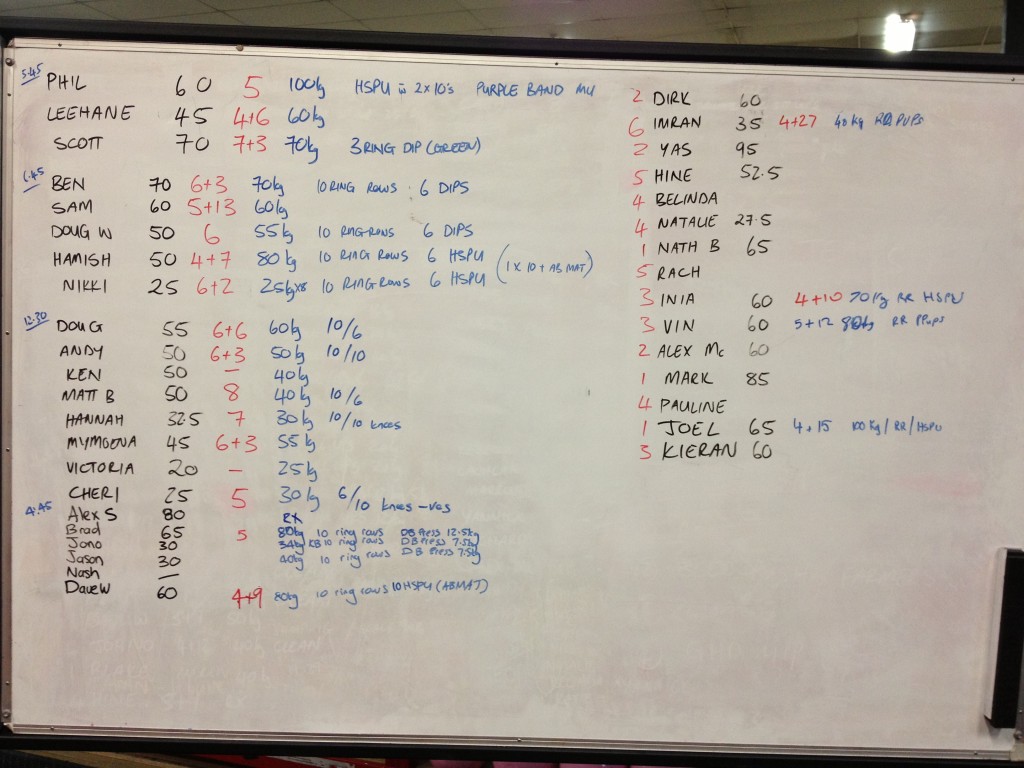 5.45
PHIL 60 5 100kg HSPU in 2x10's PURPLE BAND MU
LEEHANE 45 4+6 60kg
SCOTT 70 7+3 70kg 3 RING DIP (GREEN)
6.45
BEN 70 6+3 70kg 10 RING ROWS 6 DIPS
SAM 60 5+13 60kg
DOUG W 50 6 55kg 10 RING ROWS 6 DIPS
HAMISH 50 4+7 80kg 10 RING ROWS 6 HSPU (1 X 10 + ABMAT)
NIKKI 25 6+2 25kgx8 10 RING ROWS 6 HSPU
12.30
DOUG 55 6+6 60kg 10/6
ANDY 50 6+3 50kg 10/10
KEN 50 – 40kg
MATT B 50 8 40kg 10/6
HANNAH 32.5 7 30kg 10/10 knees
MYMOENA 45 6+3 55kg
VICTORIA 20 – 25kg
CHERI 25 5 30kg 6/10 knees
4:45
Alex S 80 RX
Brad 65 5 80kg 10 ring rows DB Press 12.5kg
Jono 30 34kg KB 10 ring rows DB Press 7.5kg
Jason 30 40kg 10 ring rows DB Press 7.5kg
Nash –
Dave W 60 4+9 80kg 10 ring rows 10 HSPU (ABMAT)
2 DIRK 60
6 IMRAN 35 4+27 40kg RR PUPS
2 YAS 95
5 HINE 52.5
4 BELINDA
4 NATALIE 27.5
1 NATH B 65
5 RACH
3 INIA 60 4+10 70kg RR HSPU
3 VIN 60 5+12 80kg RR PPups
2 ALEX Mc 60
1 MARK 85
4 PAULINE
1 JOEL 65 4+15 100kg/RR/HSPU
3 KIERAN 60